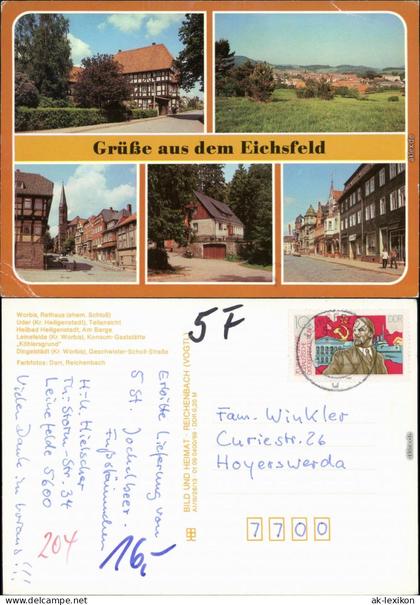 Grüße aus dem Eichsfeld
Worbis, Rathaus (ehem. Schloß)
Uder (Kr. Heiligenstadt), Teilansicht
Heilbad Heiligenstadt, Am Berge
Leinefelde (Kr. Worbis), Konsum-Gaststätte
"Köhlersgrund"
Dingelstädt (Kr. Worbis), Geschwister-Scholl-Straße
Farbfotos: Darr, Reichenbach
5F
10
DDR
BILD UND HEIMAT · REICHENBACH (VOGTL)
Erbitte Lieferung von
5 St. Jochelbeer-
Fußstämmchen
H.-U. Hielscher
Th.-Storm-Str. 34
Leinefelde 5600
Vielen Dank im voraus!!!
204
16,-
Fam. Winkler
Curiestr. 26
Hoyerswerda
7700
© ak-ansichtskarten.de
ak-lexikon.com